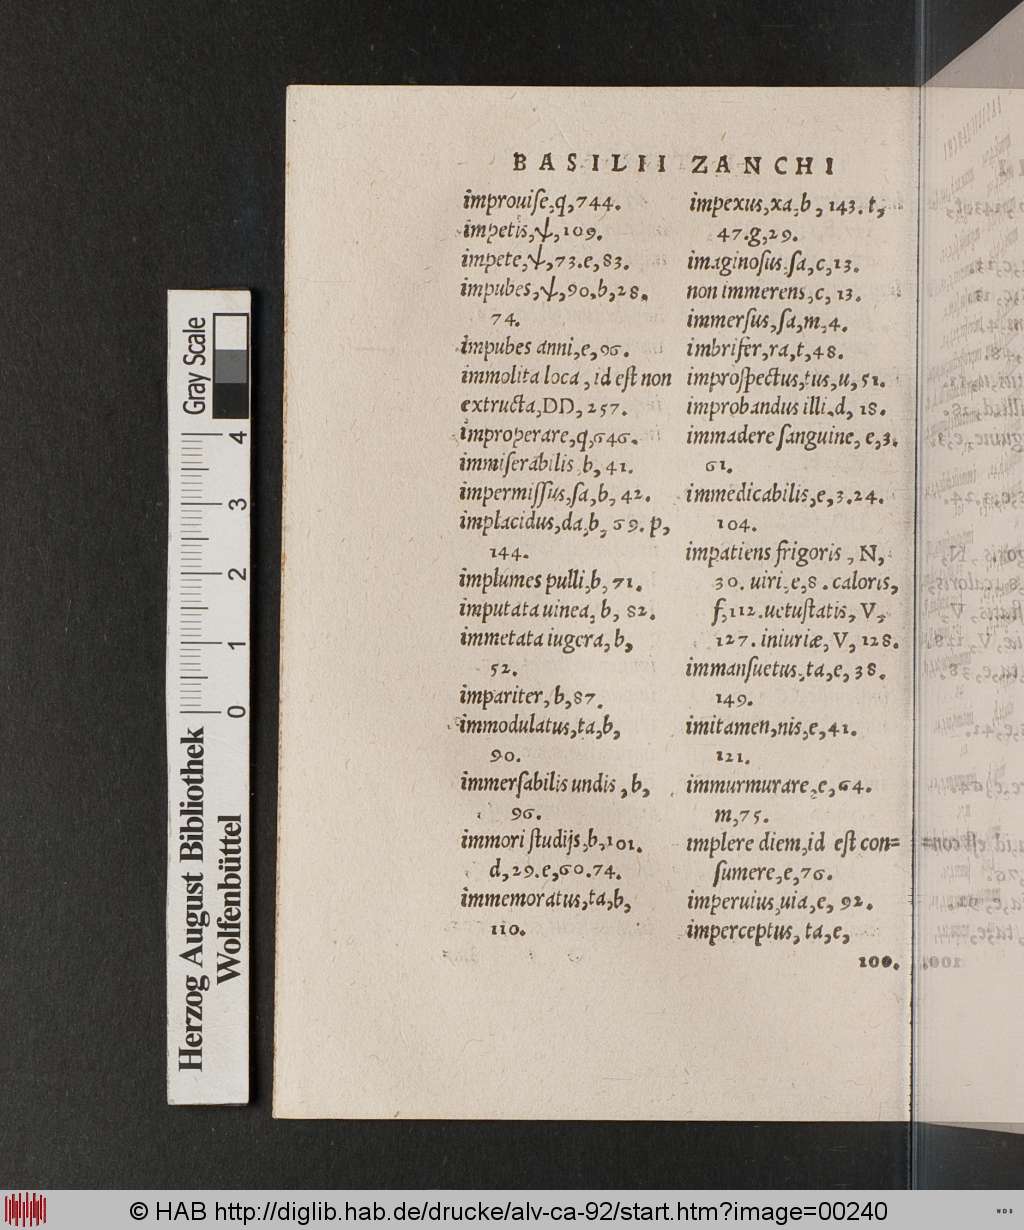 BASILII ZANCHI
improuiſe,q,744.
impetis,ψ,109.
impete,ψ,73.e,83.
impubes,ψ,90.b,28.
74.
impubes anni,e,96.
immolita loca, id eſt non
extructa,DD,257.
improperare,q,646.
immiſerabilis b, 41.
impermiſſus,ſa,b, 42.
implacidus,da,b, 69. p,
144.
implumes pulli,b, 71.
imputata uinea, b, 82.
immetata iugera, b,
52.
impariter, b, 87.
immodulatus,ta,b,
90.
immerſabilis undis, b,
96.
immori ſtudijs,b,101.
d,29.e,60.74.
immemoratus,ta,b,
110.
impexus,xa,b, 143. t,
47.g,29.
imaginoſus,ſa,c,13.
non immerens,c, 13.
immerſus,ſa,m,4.
imbrifer,ra,t,48.
improſpectus,tus,u,51.
improbandus illi,d, 18.
immadere ſanguine, e,3.
61.
immedicabilis,e,3.24.
104.
impatiens frigoris, N,
30. uiri,e,8. caloris,
f,112.uetuſtatis, V,
127. iniuriæ, V, 128.
immanſuetus,ta,e, 38.
149.
imitamen,nis,e,41.
121.
immurmurare,e,64.
m,75.
implere diem,id eſt con=
ſumere,e,76.
imperuius,uia,e, 92.
imperceptus, ta,e,
100.
Gray Scale
4
3
2
1
0
Herzog August Bibliothek
Wolfenbüttel
© HAB http://diglib.hab.de/drucke/alv-ca-92/start.htm?image=00240